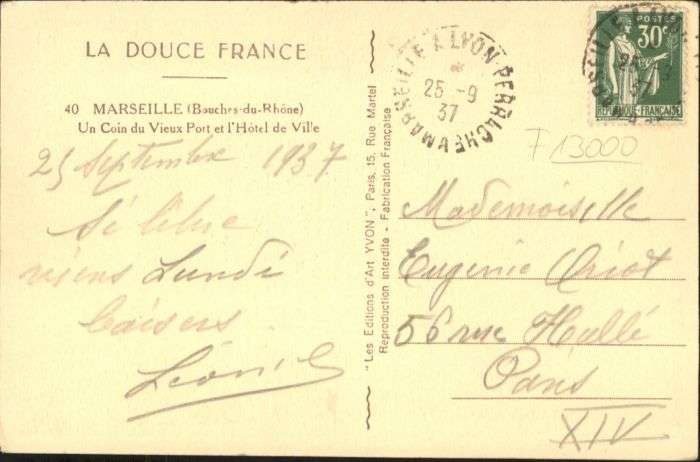 LA DOUCE FRANCE
40 MARSEILLE (Bouches-du-Rhône)
Un Coin du Vieux Port et l'Hôtel de Ville
25 Septembre 1937
Si libre
viens Lundi
baisers
Léonie
"Les Editions d'Art YVON", Paris, 15, Rue Martel
Reproduction interdite - Fabrication Française
MARSEILLE A LYON-PERRACHE
25-9
37
POSTES
30c
REPUBLIQUE FRANÇAISE
13000
Mademoiselle
Eugenie
56 rue Hallé
Paris
XIV